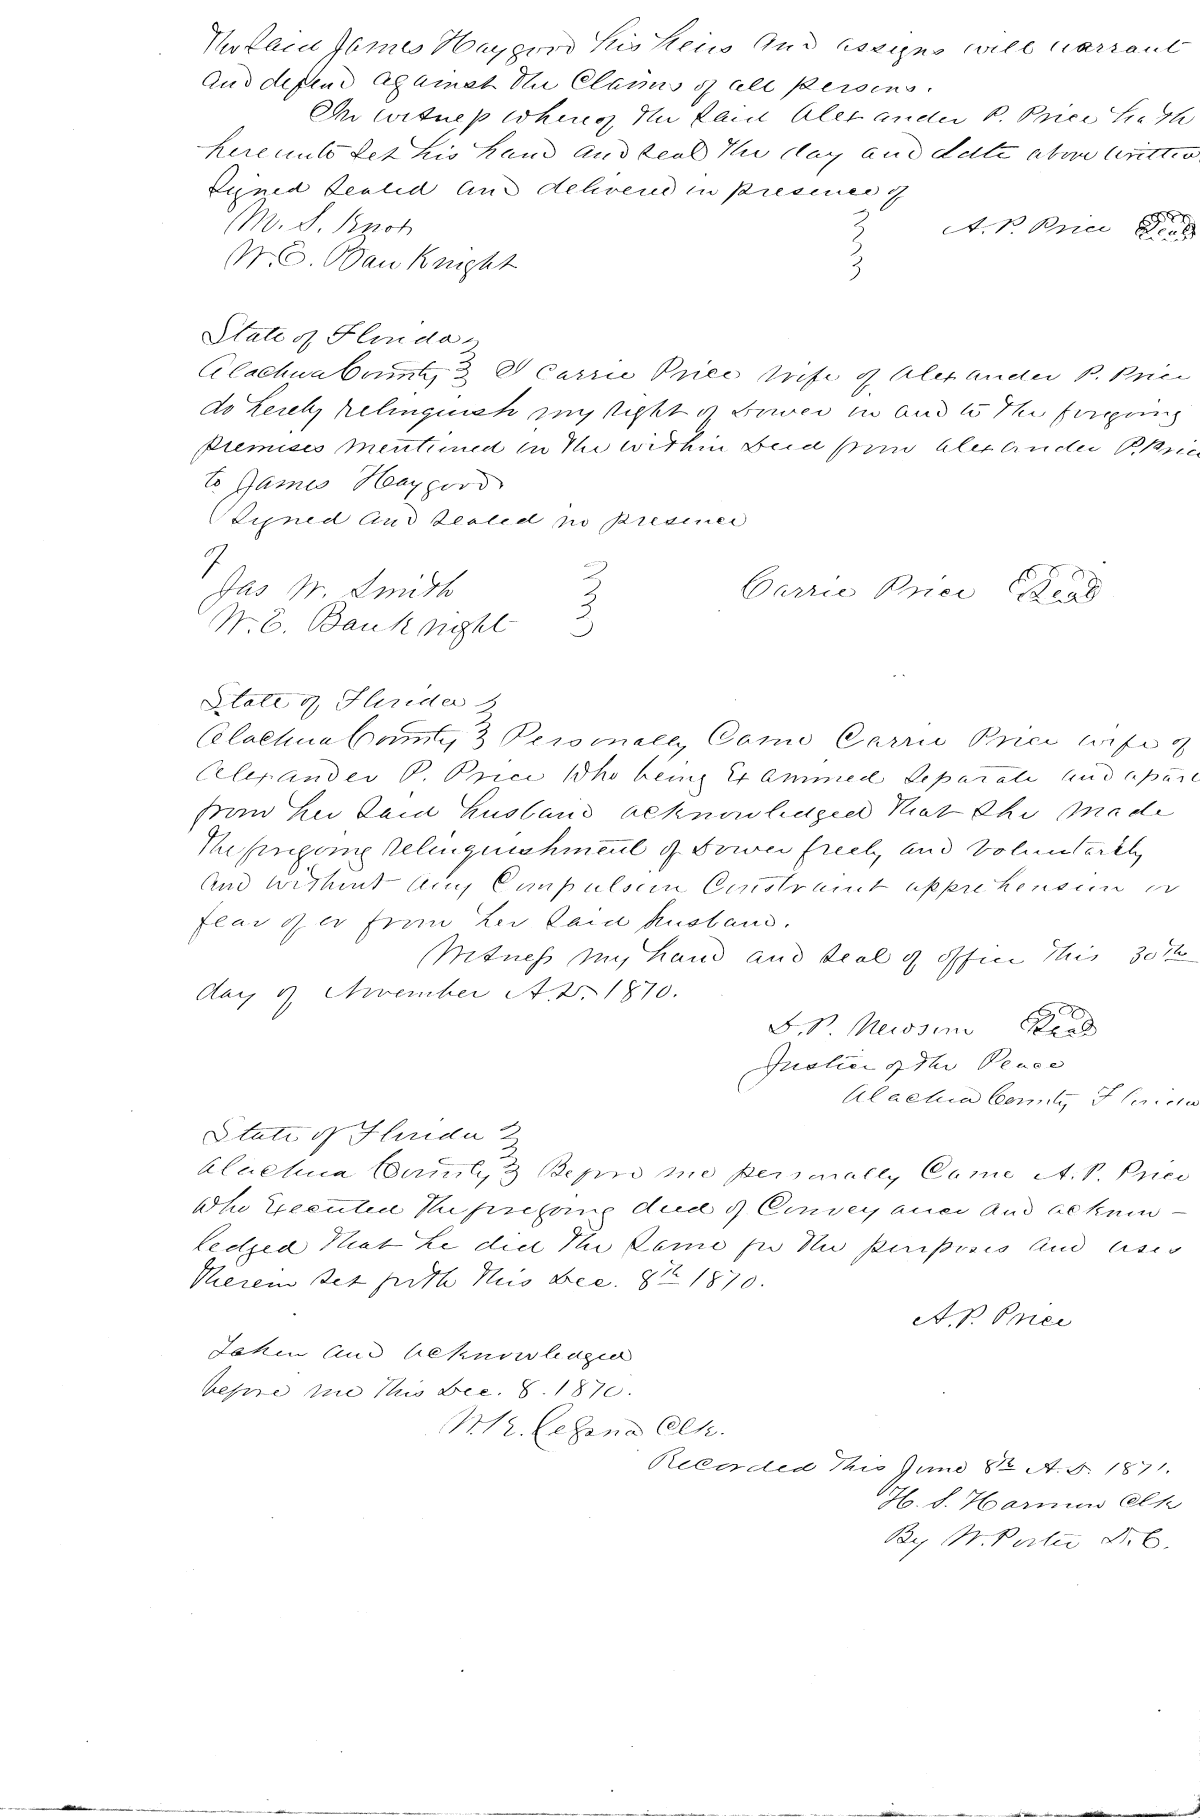 The Said James Haygood his heirs and assigns will warrant
and defend against the Claims of all persons.
In witness whereof the Said Alexander P. Price hath
hereunto Set his hand and seal the day and date above written
Signed Sealed and delivered in presence of
M. S. Knot } A. P. Price Seal
W. E. Bauknight }
State of Florida }
Alachua County } I Carrie Price wife of Alexander P. Price
do hereby relinquish my right of Dower in and to the forgoing
premises mentioned in the within Deed from Alexander P. Price
to James Haygood
Signed and Sealed in presence
of
Jas W. Smith } Carrie Price Seal
W. E. Bauknight }
State of Florida }
Alachua County } Personally Came Carrie Price wife of
Alexander P. Price who being Examined Separate and apart
from her Said husband acknowledged that She made
the foregoing relinquishment of Dower freely and Voluntarily
and without any Compulsion Constraint apprehension or
fear of or from her Said husband.
Witness my hand and Seal of office this 30th
day of November A.D. 1870.
D. P. Newsom Seal
Justice of the Peace
Alachua County Florida
State of Florida }
Alachua County } Before me personally Came A. P. Price
who Executed the foregoing deed of Conveyance and acknow-
ledged that he did the Same for the purposes and uses
therein set forth this Dec. 8th 1870.
A. P. Price
Taken and acknowledged
before me this Dec. 8. 1870.
Clk.
Recorded this June 8th A. D. 1871.
H. S. Harmon Clk
By W. Porter D. C.